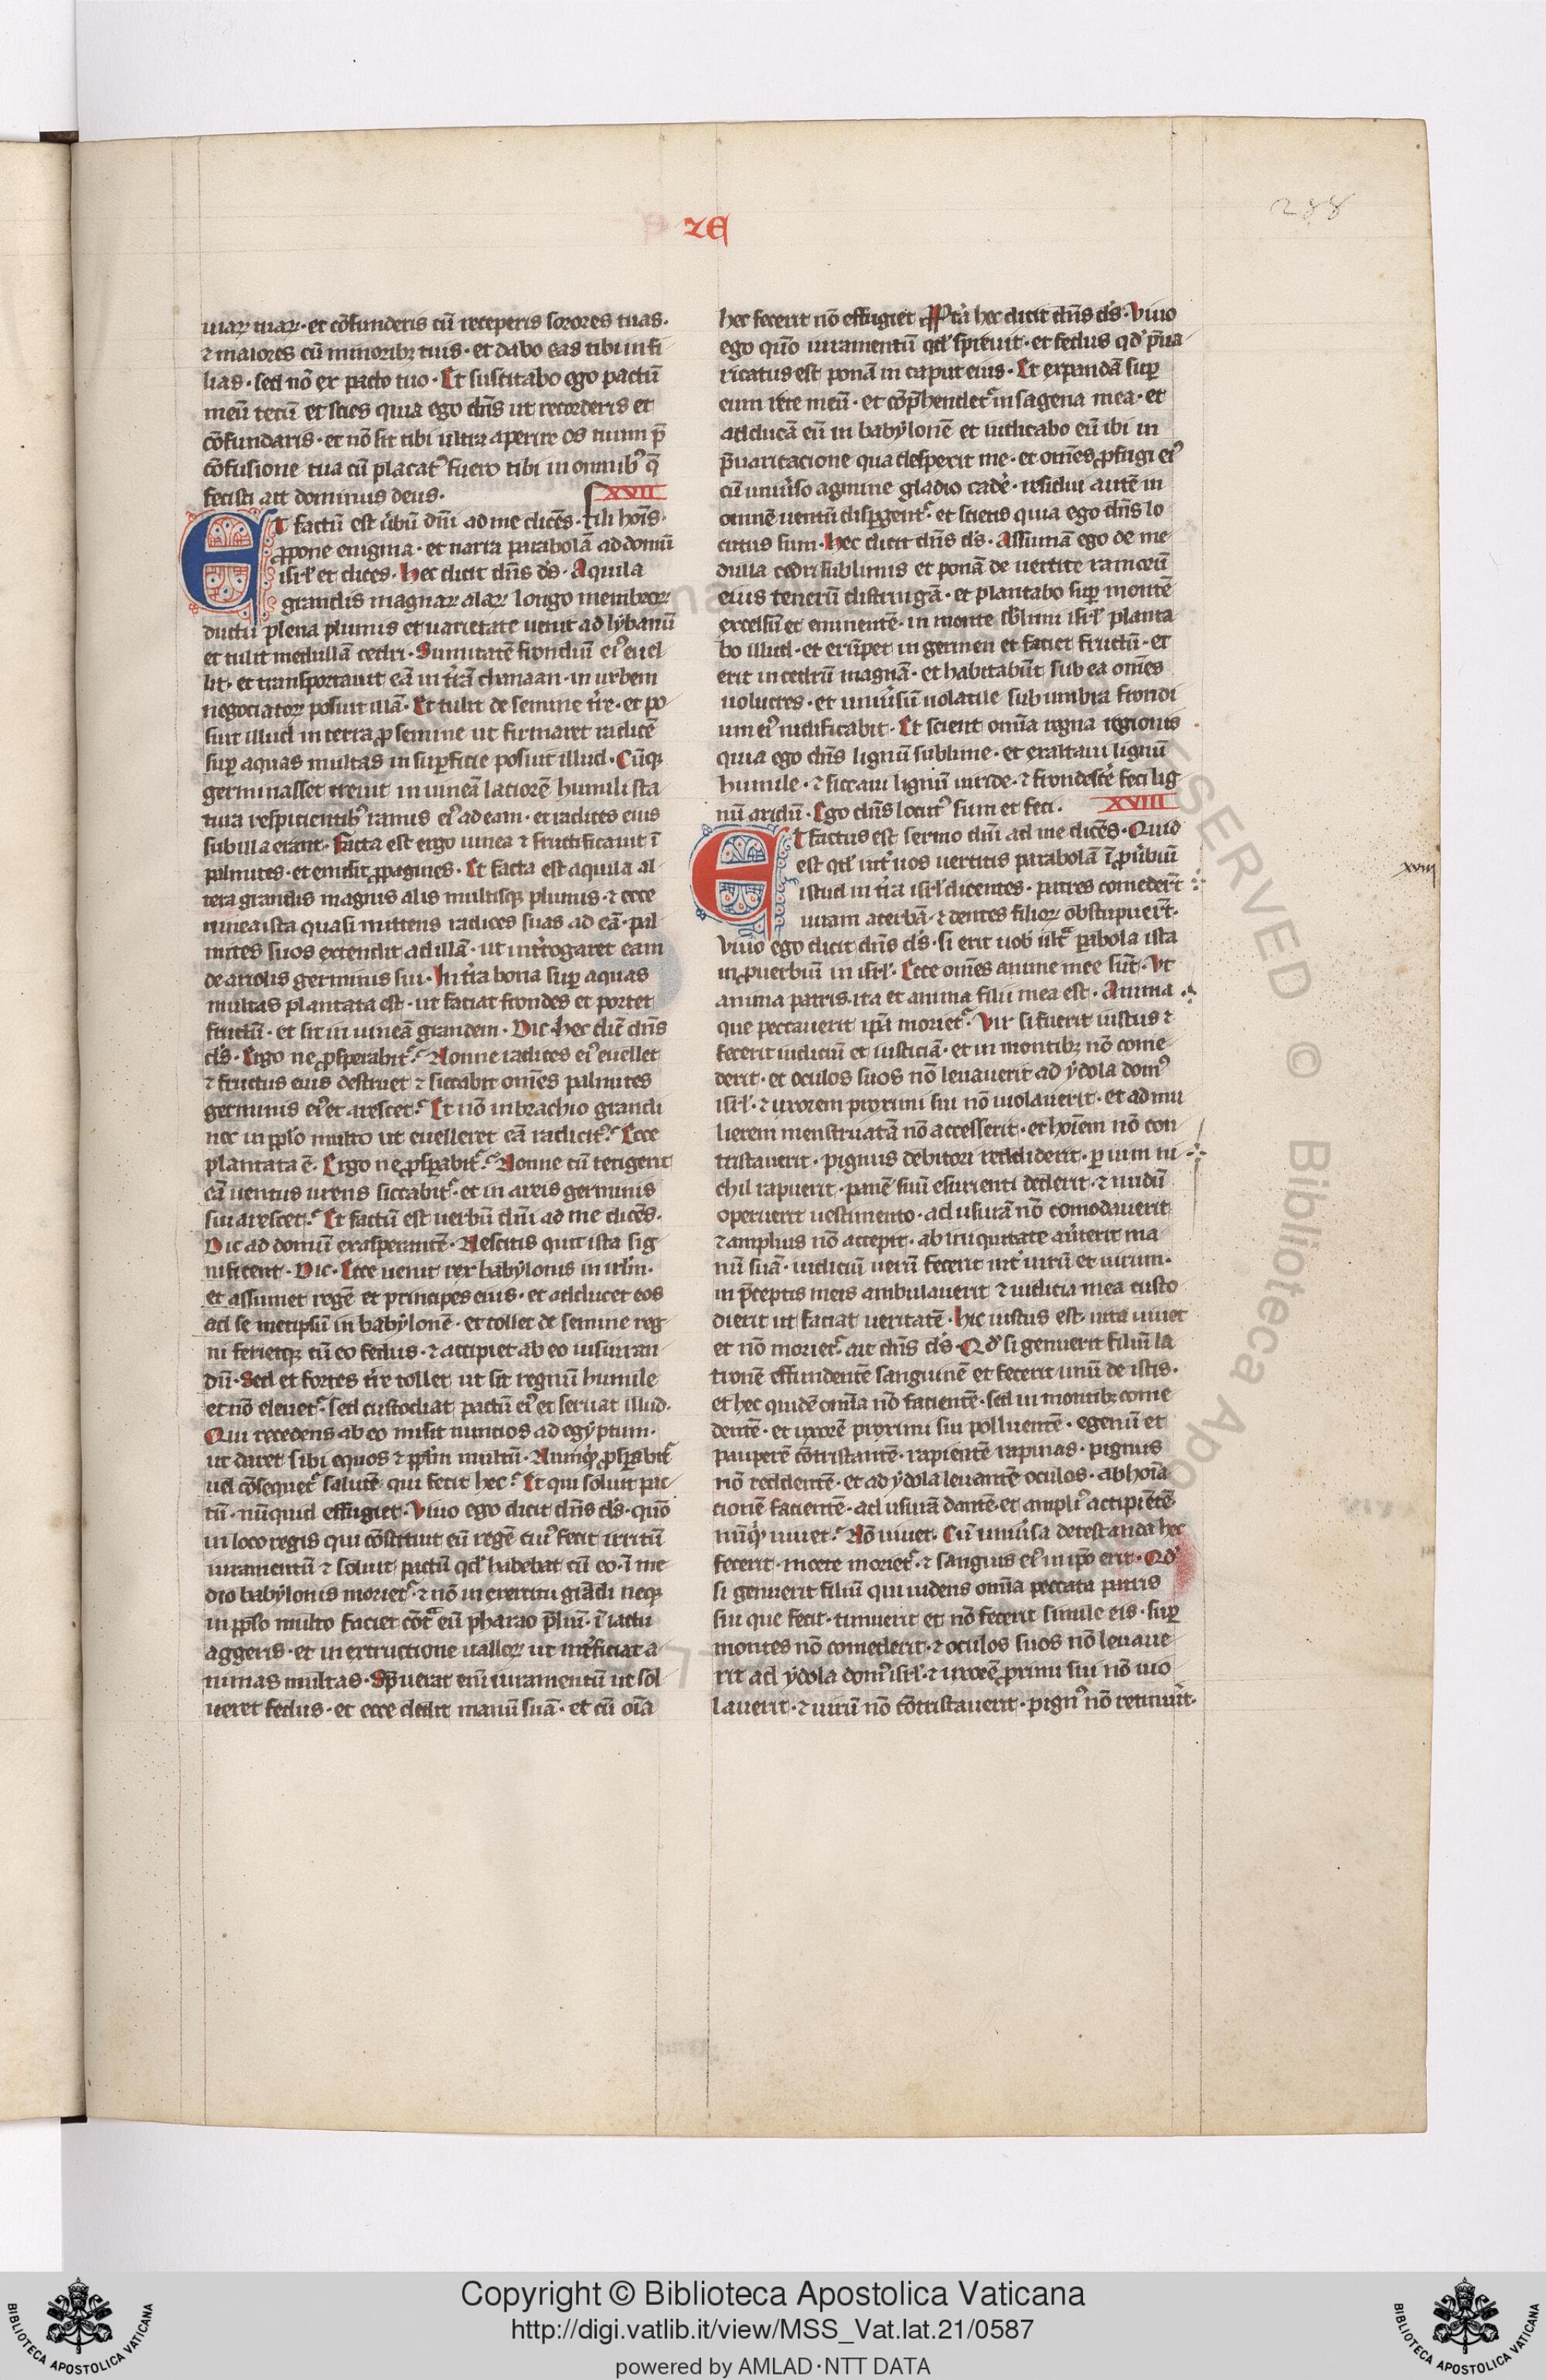 ZE
288
uiaꝝ tuaꝝ · et cōfunderis cū receperis sorores tuas ·
⁊ maiores cū minoribꝫ tuis · et dabo eas tibi in fi
lias · sed nō ex pacto tuo · Et suscitabo ego pactū
meū tecū et scies quia ego dn̄s ut recorderis et
cōfundaris · et nō sit tibi ultra aperire os tuum p̄
cōfusione tua cū placatꝰ fuero tibi in omnibꝰ q̄
fecisti ait dominus deus ·
XVII
Et factū est u̓bū dn̄i ad me dicēs · fili hoīs ·
ꝓpone enigma · et narra parabolā ad domū
isrl̓ et dices · Hec dicit dn̄s ds̄ · Aquila
grandis magnaꝝ alaꝝ longo membroꝝ
ductu plena plumis et uarietate uenit ad lybanū
et tulit medullā cedri · Sumitatē frondiū eiꝰ euel
lit · et transportauit eā in tr̄ā chanaan · in urbem
negociatoꝝ posuit illā · Et tulit de semine tr̄e · et po
suit illud in terra ꝓ semine ut firmaret radicē
suꝑ aquas multas in suꝑficie posuit illud · Cūqꝫ
germinasset creuit in uineā latiorē humili sta
tura respicientibꝰ ramis eiꝰ ad eam · et radices eius
sub illa erant · Facta est ergo uinea ⁊ fructificauit ī
palmites · et emisit ꝓpagines · Et facta est aquila al
tera grandis magnis alis multisqꝫ plumis · ⁊ ecce
uinea ista quasi mittens radices suas ad eā · pal
mites suos extendit ad illā · ut int̓rogaret eam
de ariolis germinis sui · In tr̄a bona suꝑ aquas
multas plantata est · ut faciat frondes et portet
fructū · et sit in uineā grandem · Dic · hec dic̄ dn̄s
ds̄ · Ergo ne ꝓsperabit᷑ · Nonne radices eiꝰ euellet
⁊ fructus eius destruet ⁊ siccabit om̄es palmites
germinis eiꝰ et arescet · Et nō in brachio grandi
nec in ppl̓o multo ut euelleret eā radicit᷑ · Ecce
plantata ē · Ergo ne ꝓsꝑabit᷑ · Nonne cū tetigerit
eā uentus urens siccabit᷑ · et in areis germinis
sui arescet · Et factū est uerbū dn̄i ad me dicēs ·
Dic ad domū exasperantē · Nescitis quit ista sig
nificent · Dic · Ecce uenit rex babylonis in irl̄m ·
et assumet regē et principes eius · et adducet eos
ad se metipsū in babylonē · et tollet de semine reg
ni ferietqꝫ cū eo fedus · ⁊ accipiet ab eo iusiuran
dū · Sed et fortes tr̄e tollet ut sit regnū humile
et nō eleuet᷑ · sed custodiat pactū eiꝰ et seruat illud ·
Qui recedens ab eo misit nuncios ad egyptum ·
ut daret sibi equos ⁊ ppl̄m multū · Nunqͥd ꝓsꝑabit᷑
uel cōsequet᷑ salutē qui fecit hec · Et qui soluit pac
tū · nūquid effugiet · Viuo ego dicit dn̄s ds̄ · quō
in loco regis qui cōstituit eū regē cuiꝰ fecit irritū
iuramentū ⁊ soluit pactū qd̓ habebat cū eo · ī me
dio babylonis moriet᷑ · ⁊ nō in exercitu grādi neqꝫ
in ppl̓o multo faciet cōt̓ eū pharao p̄liū · ī iactu
aggeris · et in extructione ualloꝝ ut int̓ficiat a
nimas multas · Sp̄uerat eni iuramentū ut sol
ueret fedus · et ecce dedit manū suā · et cū oīa
hec fecerit nō effugiet Ꝓpt̓a hec dicit dn̄s ds̄ · Viuo
ego quō iuramentū qd̓ spreuit · et fedus qd̓ p̄ua
ricatus est ponā in caput eius · Et expandā suꝑ
eum rete meū · et cōp̄hendet᷑ in sagena mea · et
adducā eū in babylonē et iudicabo eū ibi in
p̄uaricacione qua despexit me · et om̄es ꝓfugi eiꝰ
cū uniu̓so agmine gladio cadē · residui autē in
omnē uentū dispgent᷑ · et scietis quia ego dn̄s lo
cutus sum · Hec dicit dn̄s ds̄ · Assumā ego de me
dulla cedri sublimis et ponā de uertice ramoꝝ
eius tenerū distringā · et plantabo suꝑ montē
excelsū et eminentē · in monte sb̓limi isrl̓ planta
bo illud · et erūpet in germen et faciet fructū · et
erit in cedrū magnā · et habitabūt sub ea om̄es
uolucres · et uniu̓sū uolatile sub umbra frondi
um eiꝰ nidificabit · Et scient om̄ia ligna regionis
quia ego dn̄s lignū sublime · et exaltaui lignū
humile · ⁊ siccaui lignū uiride · ⁊ frondescē feci lig
nū aridū · Ego dn̄s locutꝰ sum et feci ·
XVIII
Et factus est sermo dn̄i ad me dicēs · Quid
est qd̓ int̓ uos uertitis parabolā ī ꝓu̓biū
istud in tr̄a isrl̓ dicentes · patres comeder̄t
uuam acerbā · ⁊ dentes filioꝝ obstupuer̄t ·
xviij
Viuo ego dicit dn̄s ds̄ · si erit uob̓ ult᷑ parabola ista
in ꝓuerbiū in isrl̓ · Ecce om̄es anime mee sūt · Vt
anima patris · ita et anima filii mea est · Anima
que peccauerit ip̄a moriet᷑ · Vir si fuerit iustus ⁊
fecerit iudiciū et iusticiā · et in montibꝫ nō come
derit · et oculos suos nō leuauerit ad ydola domꝰ
isrl̓ · ⁊ uxorem proximi sui nō uiolauerit · et ad mu
lierem menstruatā nō accesserit · et hoīem nō con
tristauerit · pignus debitori reddiderit · ꝑ uim ni
chil rapuerit · panē suū esurienti dederit · ⁊ nudū
operuerit uestimento · ad usurā nō comodauerit
⁊ amplius nō accepit · ab iniquitate au̓terit ma
nū suā · iudiciū uerū fecerit int̓ uirū et uirum ·
in p̄ceptis meis ambulauerit ⁊ iudicia mea custo
dierit ut faciat ueritatē · Hic iustus est · uita uiuet
et nō moriet᷑ ait dn̄s ds̄ · Qd̓ si genuerit filiū la
tronē effundentē sanguinē et fecerit unū de istis ·
et hec quidē om̄ia nō facientē · sed in montibꝫ come
dentē · et uxorē proximi sui polluentē · egenū et
pauperē cōtristantē · rapientē rapinas · pignus
nō reddentē · et ad ydola leuantē oculos · abhoīa
cionē facientē · ad usurā dantē et ampliꝰ accipiētē
nūqͥd uiuet · Nō uiuet · Cū uniu̓sa detestanda hec
fecerit · morte moriet᷑ · ⁊ sanguis eiꝰ in ip̄o erit · Qd̓
si genuerit filiū qui uidens om̄ia peccata patris
sui que fecit · timuerit et nō fecerit simile eis · suꝑ
montes nō comederit · ⁊ oculos suos nō leuaue
rit ad ydola domꝰ isrl̓ · ⁊ uxorē ꝓximi sui nō uio
lauerit · ⁊ uirū nō cōtristauerit · pignꝰ nō retinuit̓ ·
Copyright © Biblioteca Apostolica Vaticana
http://digi.vatlib.it/view/MSS_Vat.lat.21/0587
powered by AMLAD·NTT DATA
BIBLIOTECA APOSTOLICA VATICANA
BIBLIOTECA APOSTOLICA VATICANA